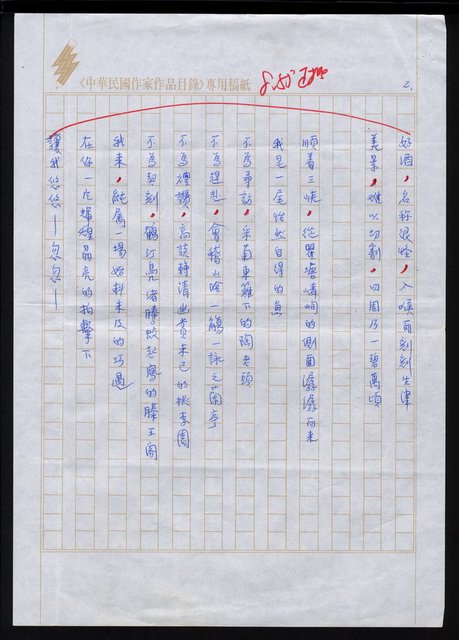 〈中華民國作家作品目錄〉專用稿紙
2.
好酒，名称浪哈，入喉有刻刻生津
美景，难以切割，四周乃一碧萬頃
順着三峽，從瞿塘嶙峋的側面潺潺而来
我是一尾怡然自得的魚
不為尋訪，采菊東籬下的陶老頭
不為趕赴，會稽山陰一觴一詠之蘭亭
不為禮讚，高談轉清幽賞未已的桃李園
不為契刻，鶴汀鳧渚騰蛟起鳳的滕王閣
我来，純屬一場始料未及的巧遇
在你一定輝煌晶亮的拍擊下
讓我悠悠—忽忽—